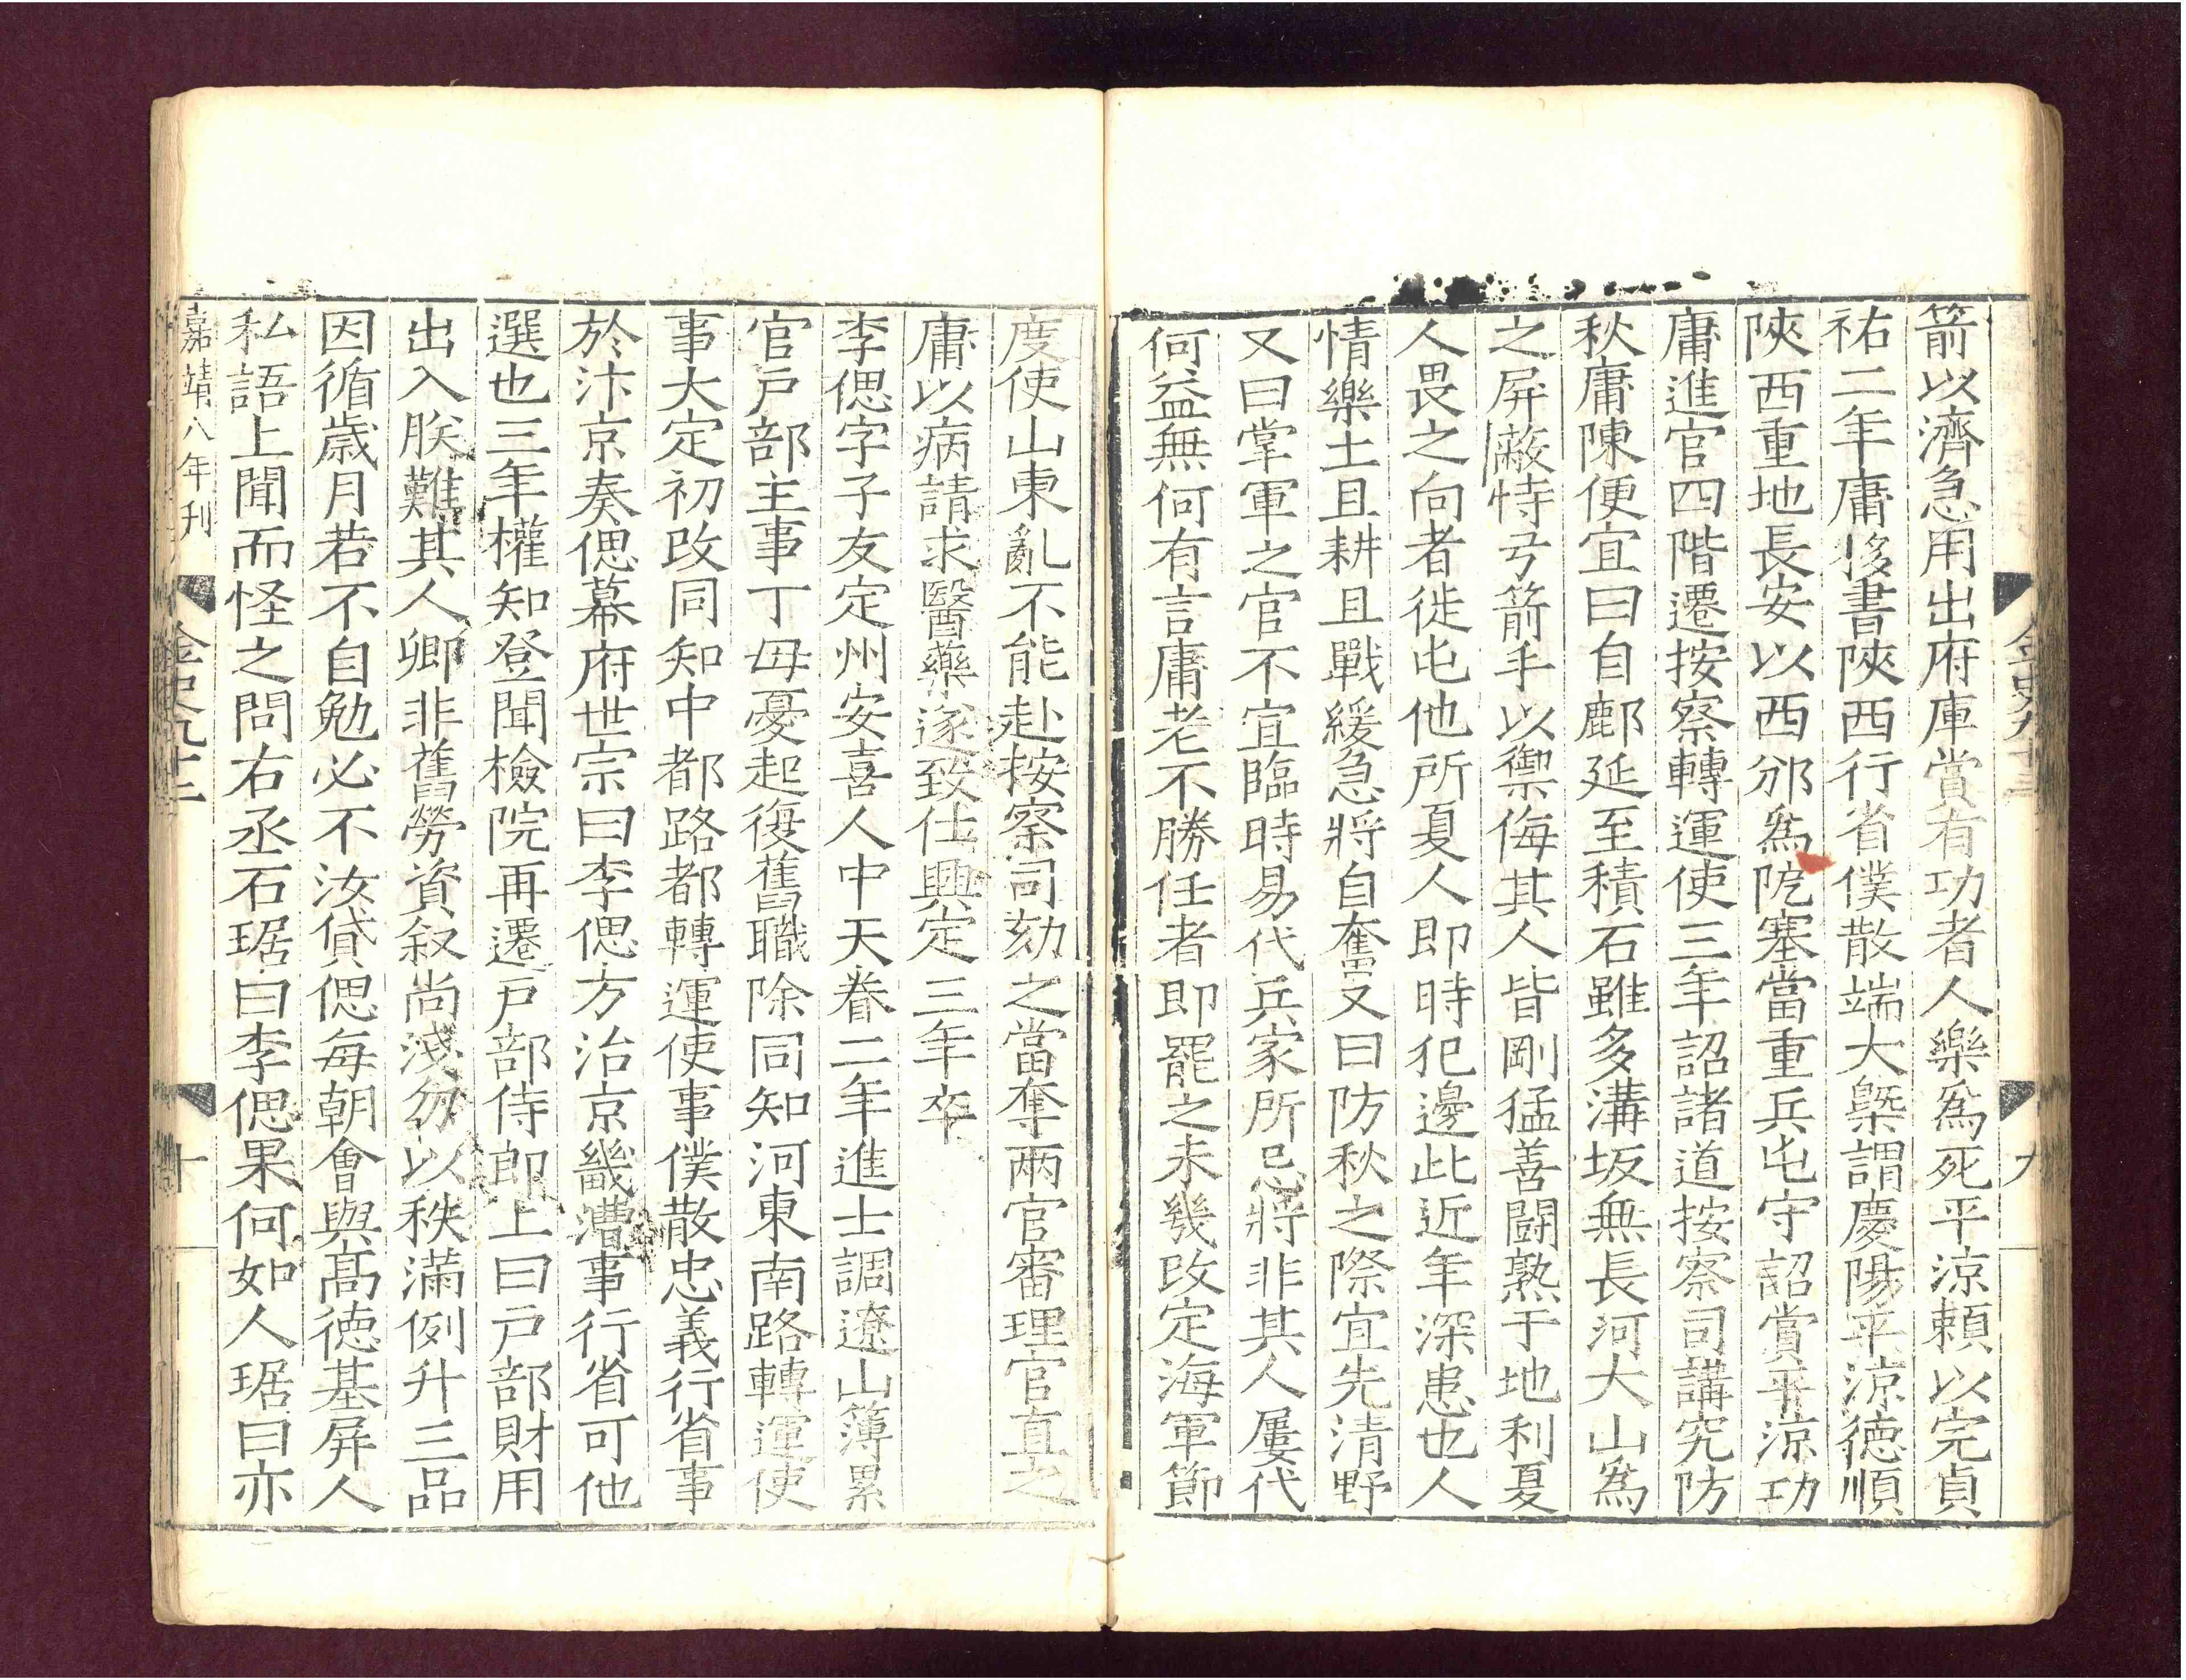 金史九十二
九
箭以濟急用出府庫賞有功者人樂爲死平涼頼以完貞
祐二年庸移書陝西行省僕散端大槩謂慶陽平涼德順
陝西重地長安以西邠爲阸塞當重兵屯守詔賞平涼功
庸進官四階遷按察轉運使三年詔諸道按察司講究防
秋庸陳便宜曰自鄜延至積石雖多溝坂無長河大山爲
之屏蔽恃弓箭手以禦侮其人皆剛猛善鬪熟于地利夏
人畏之向者徙屯他所夏人即時犯邊此近年深患也人
情樂土且耕且戰緩急將自奮又曰防秋之際宜先清野
又曰掌軍之官不宜臨時易代兵家所忌將非其人屢代
何益無何有言庸老不勝任者即罷之未幾改定海軍節
度使山東亂不能赴按察司劾之當奪兩官審理官直之
庸以病請求醫藥遂致仕興定三年卒
李偲字子友定州安喜人中天眷二年進士調遼山簿累
官戶部主事丁毋憂起復舊職除同知河東南路轉運使
事大定初改同知中都路都轉運使事僕散忠義行省事
於汴京奏偲幕府世宗曰李偲方治京畿漕事行省可他
選也三年權知登聞檢院再遷戶部侍郎上曰戶部財用
出入朕難其人卿非舊勞資叙尚淺勿以秩滿例升三品
因循歲月若不自勉必不汝貸偲每朝會與髙德基屏人
私語上聞而怪之問右丞石琚曰李偲果何如人琚曰亦
嘉靖八年刊
金史九十二
十